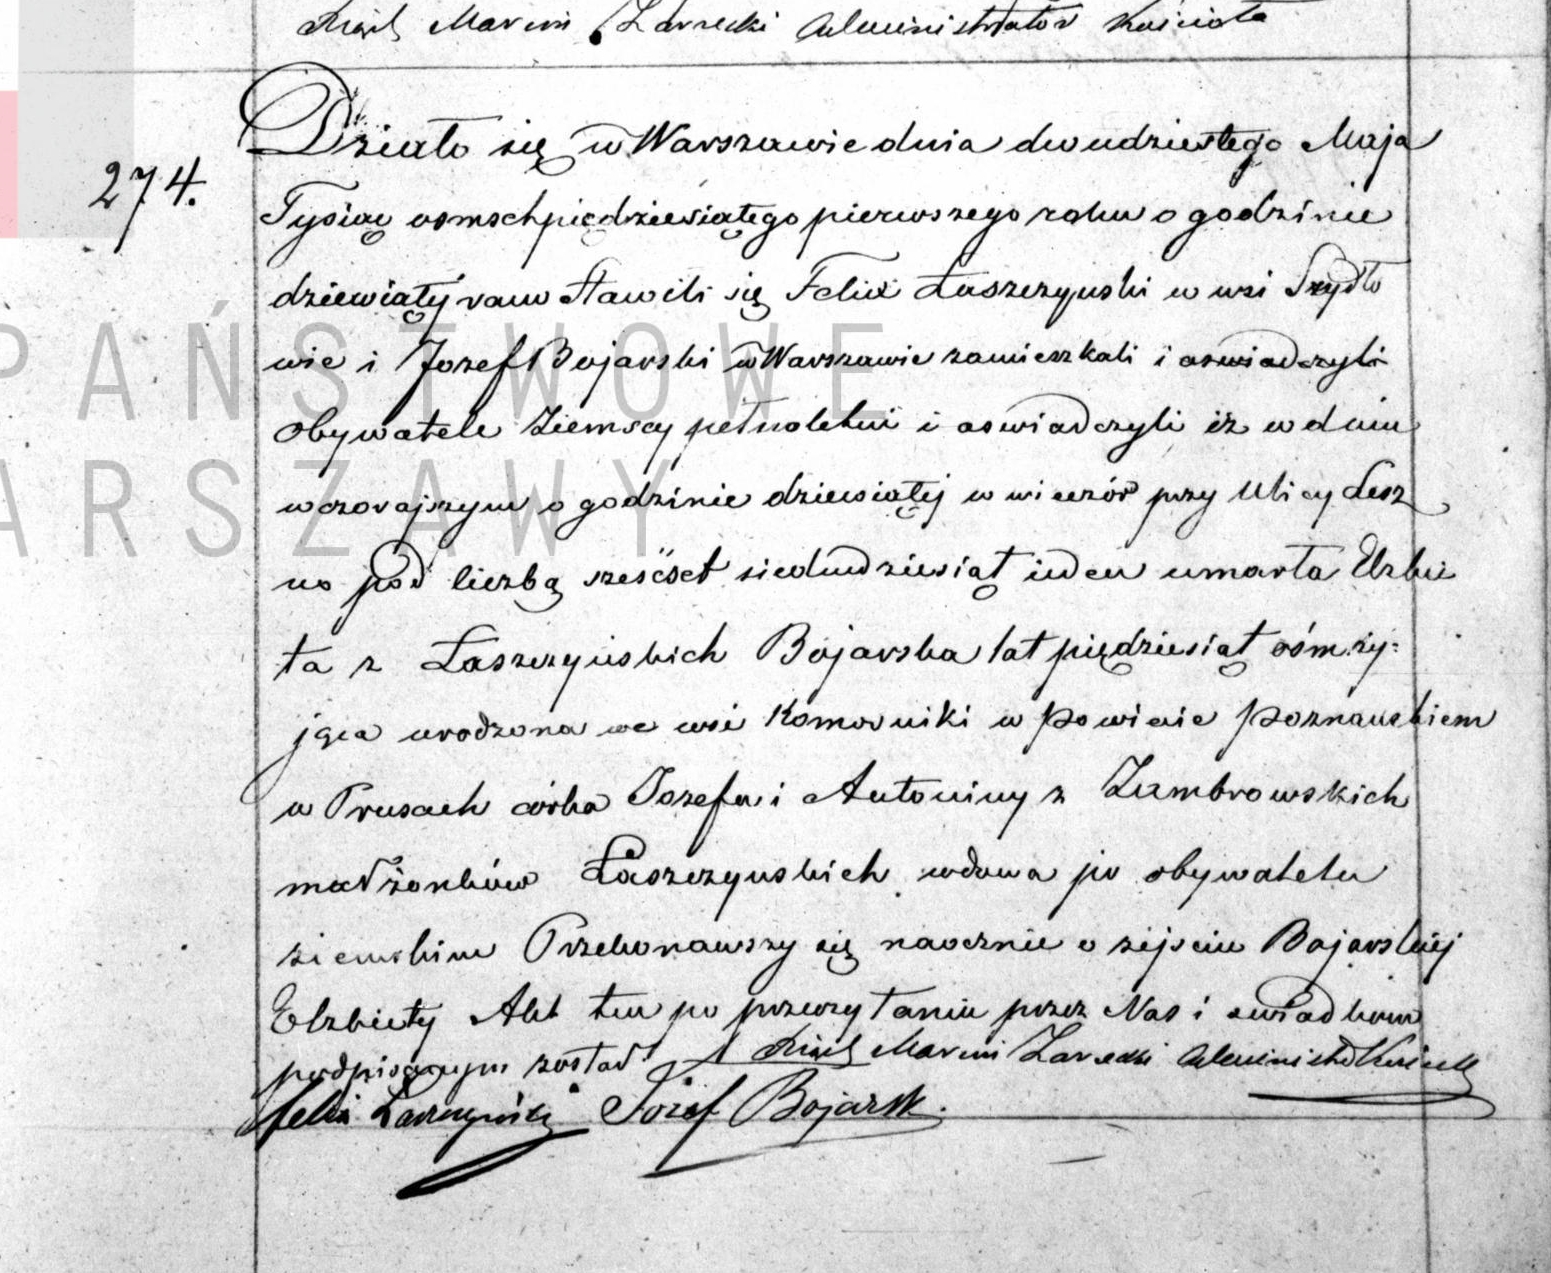 Xiądz Marcin Zarzecki Administrator Kościoła
274.
Działo się w Warszawie dnia dwudziestego Maja
Tysiąc osmset piędziesiątego pierwszego roku o godzinie
dziewiąty rano Stawili się Felix Łaszczynski w wsi Szydło
wie i Jozef Bojarski w Warszawie zamieszkali i oswiadczyli
Obywatele Ziemscy pełnoletni i oswiadczyli iż w dniu
wczorajszym o godzinie dziewiątej w wieczór przy Ulicy Lesz
no pod liczbą sześćset siedmdziesiąt ieden umarła Elzbie
ta z Łaszczynskich Bojarska lat piędziesiąt ośm ży=
jąca urodzona we wsi Komorniki w Powiecie Poznanskiem
w Prusach córka Jozefa i Antoniny z Zambrowskich
małżonków Łaszczynskich wdowa po obywatelu
ziemskim Przekonawszy się naocznie o zejsciu Bojarskiej
Elzbiety Akt ten po przeczytaniu przez Nas i swiadkow
podpisanym został Xiądz Marcin Zarzecki Administr Kościoła
Felix Łaszczyński Józef Bojarski
PAŃSTWOWE
ARSZAWY